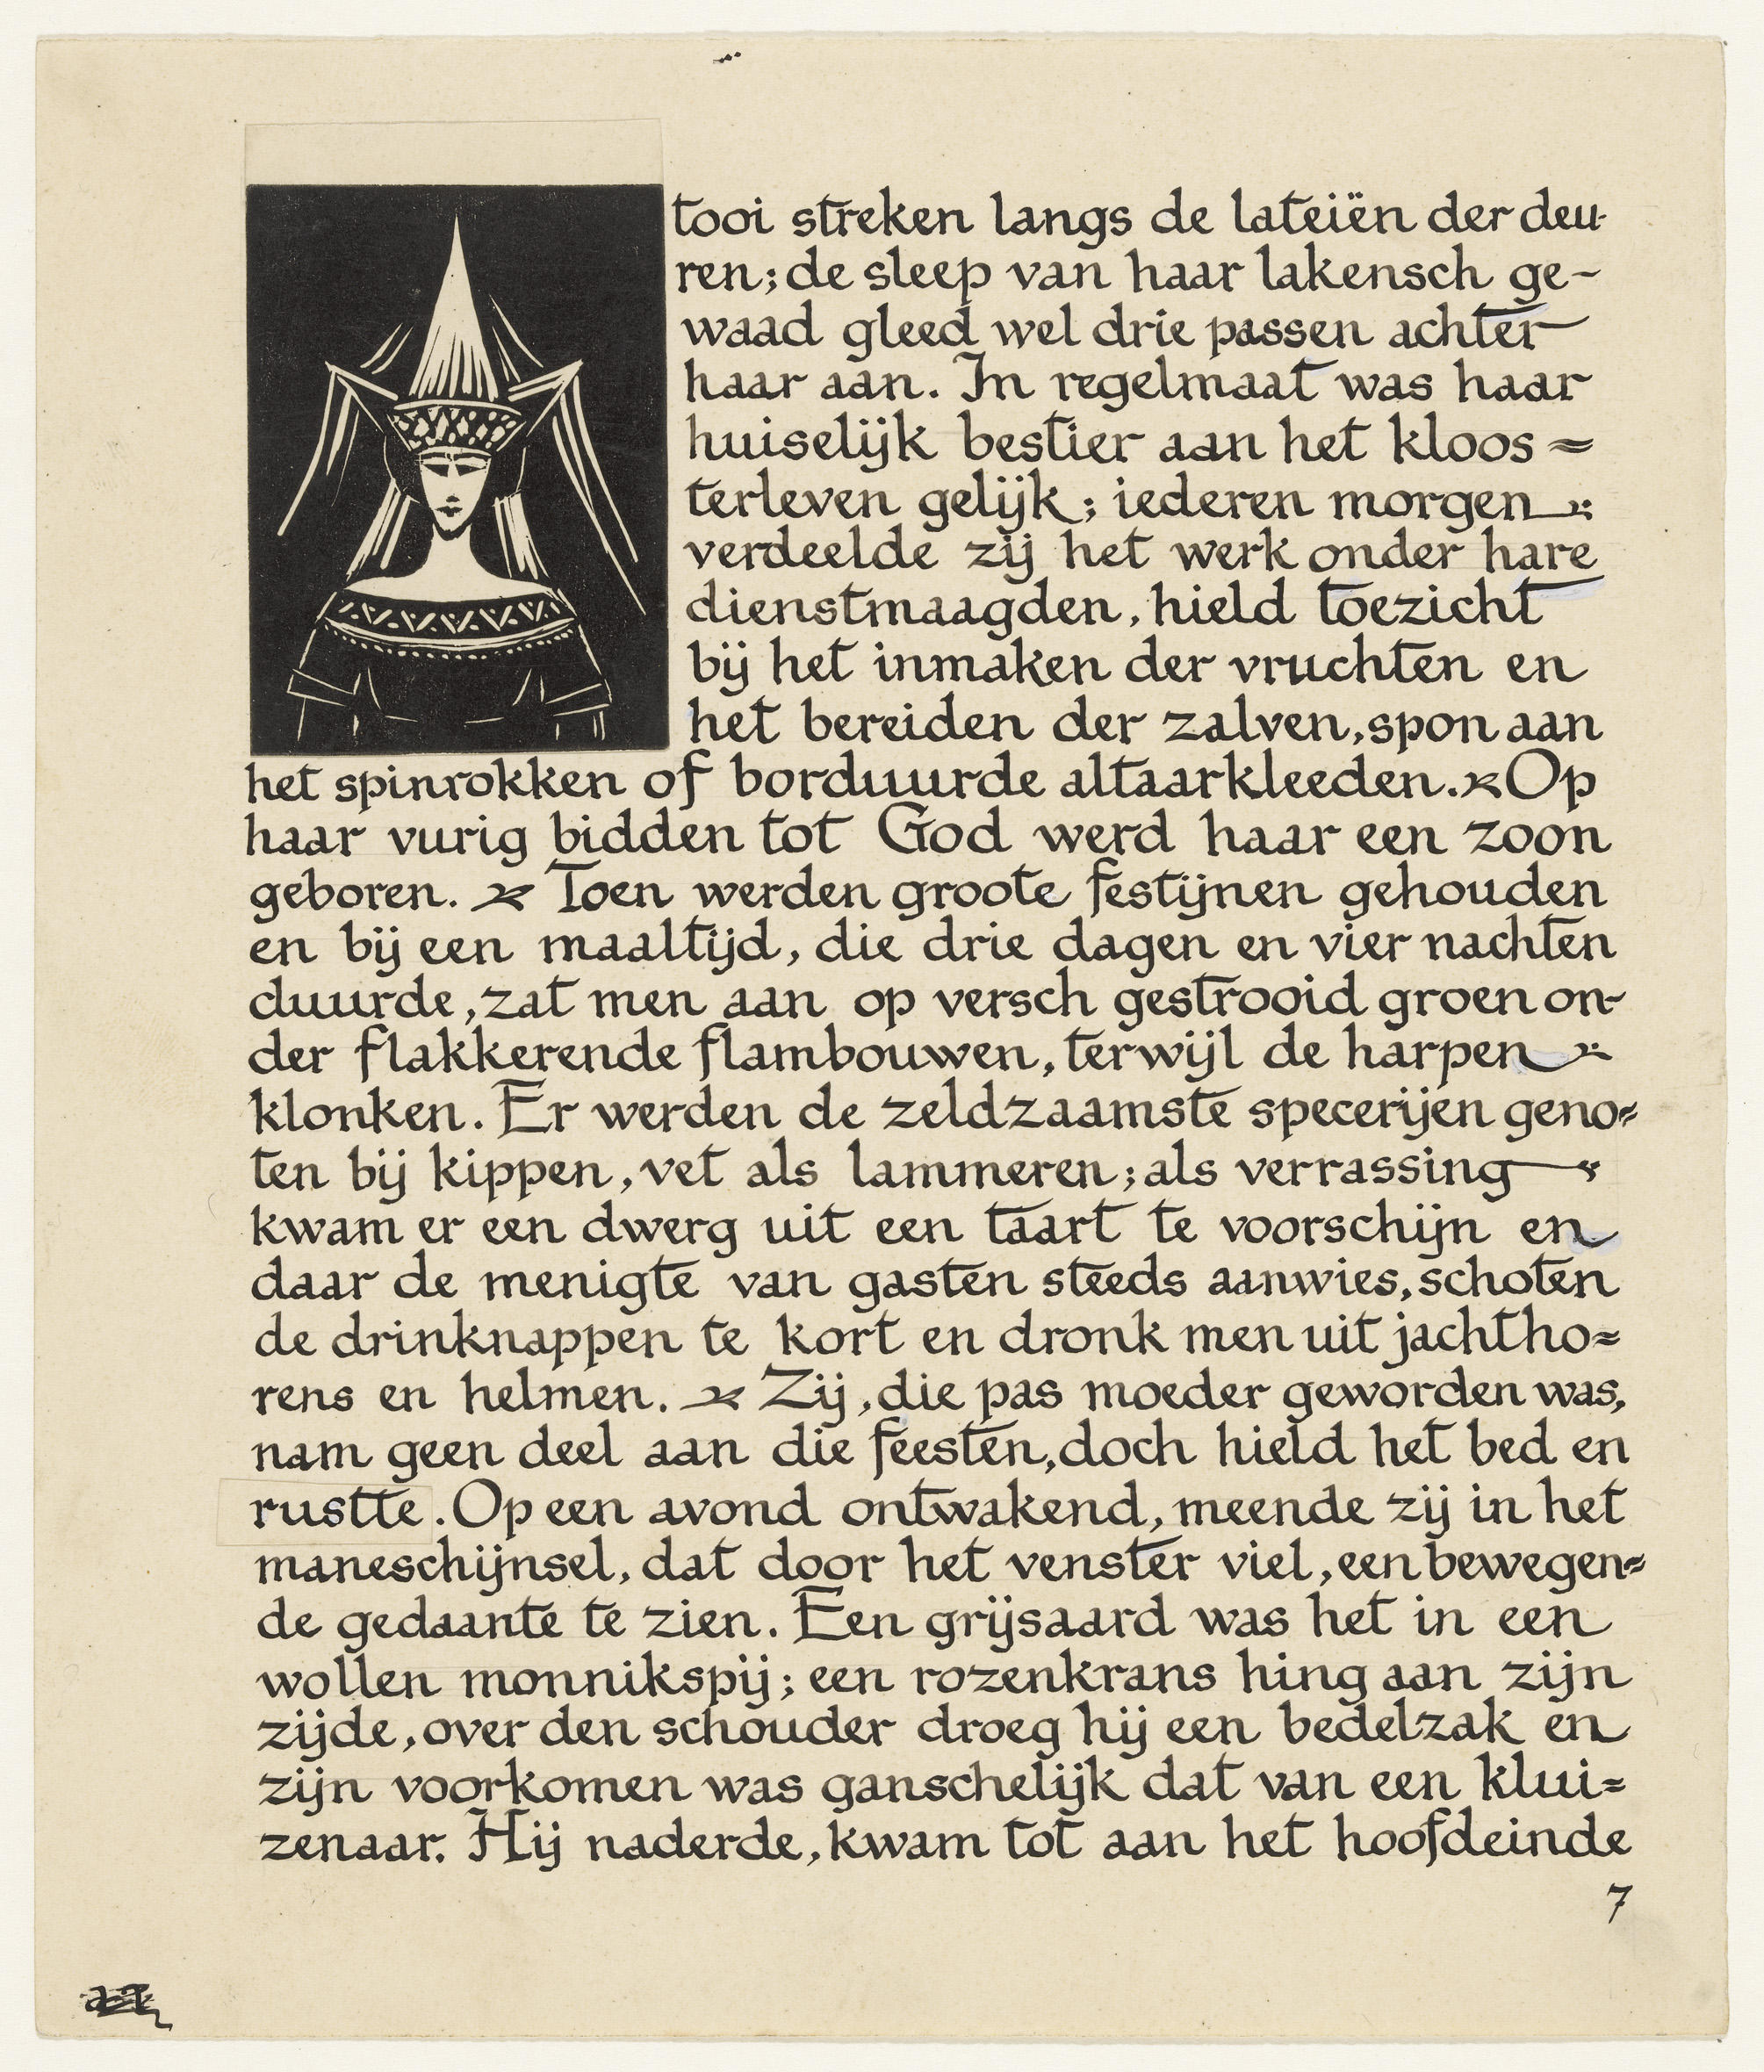 tooi streken langs de lateiën der deu-
ren; de sleep van haar lakensch ge-
waad gleed wel drie passen achter
haar aan. In regelmaat was haar
huiselijk bestier aan het kloos=
terleven gelijk; iederen morgen
verdeelde zij het werk onder hare
dienstmaagden, hield toezicht
bij het inmaken der vruchten en
het bereiden der zalven, spon aan
het spinrokken of borduurde altaarkleeden. Op
haar vurig bidden tot God werd haar een zoon
geboren. Toen werden groote festijnen gehouden
en bij een maaltijd, die drie dagen en vier nachten
duurde, zat men aan op versch gestrooid groen on-
der flakkerende flambouwen, terwijl de harpen
klonken. Er werden de zeldzaamste specerijen geno=
ten bij kippen, vet als lammeren; als verrassing
kwam er een dwerg uit een taart te voorschijn en
daar de menigte van gasten steeds aanwies, schoten
de drinknappen te kort en dronk men uit jachtho=
rens en helmen. Zij, die pas moeder geworden was,
nam geen deel aan die feesten, doch hield het bed en
rustte. Op een avond ontwakend, meende zij in het
maneschijnsel, dat door het venster viel, een bewegen=
de gedaante te zien. Een grijsaard was het in een
wollen monnikspij; een rozenkrans hing aan zijn
zijde, over den schouder droeg hij een bedelzak en
zijn voorkomen was ganschelijk dat van een klui=
zenaar. Hij naderde, kwam tot aan het hoofdeinde
7